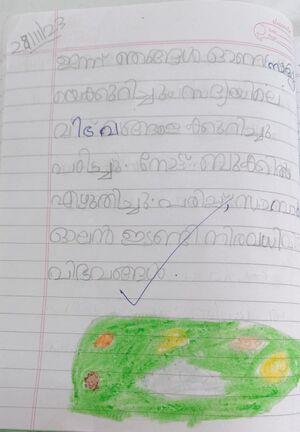 28/11/23
ഇന്ന് ഞങ്ങൾ ഓണസദ്യ
യെക്കുറിച്ചും സദ്യയിലെ
വിഭവങ്ങളെ ക്കുറിച്ചും
പഠിച്ചു. നോട്ട് ബുക്കിൽ
എഴുതിച്ചു.
ഓലൻ നിരവധി
വിഭവങ്ങൾ.